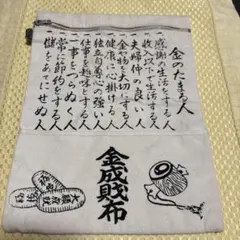 金のたまる人
一、感謝の生活をする人
一、収入以下で生活する人
一、夫婦仲の良い人
一、金や物を大切にする人
一、健康に心掛ける人
一、独立自尊心の強い人
一、仕事を趣味とする人
一、一事をつらぬく人
一、常に節約をする人
一、儲をあてにせぬ人
金成財布